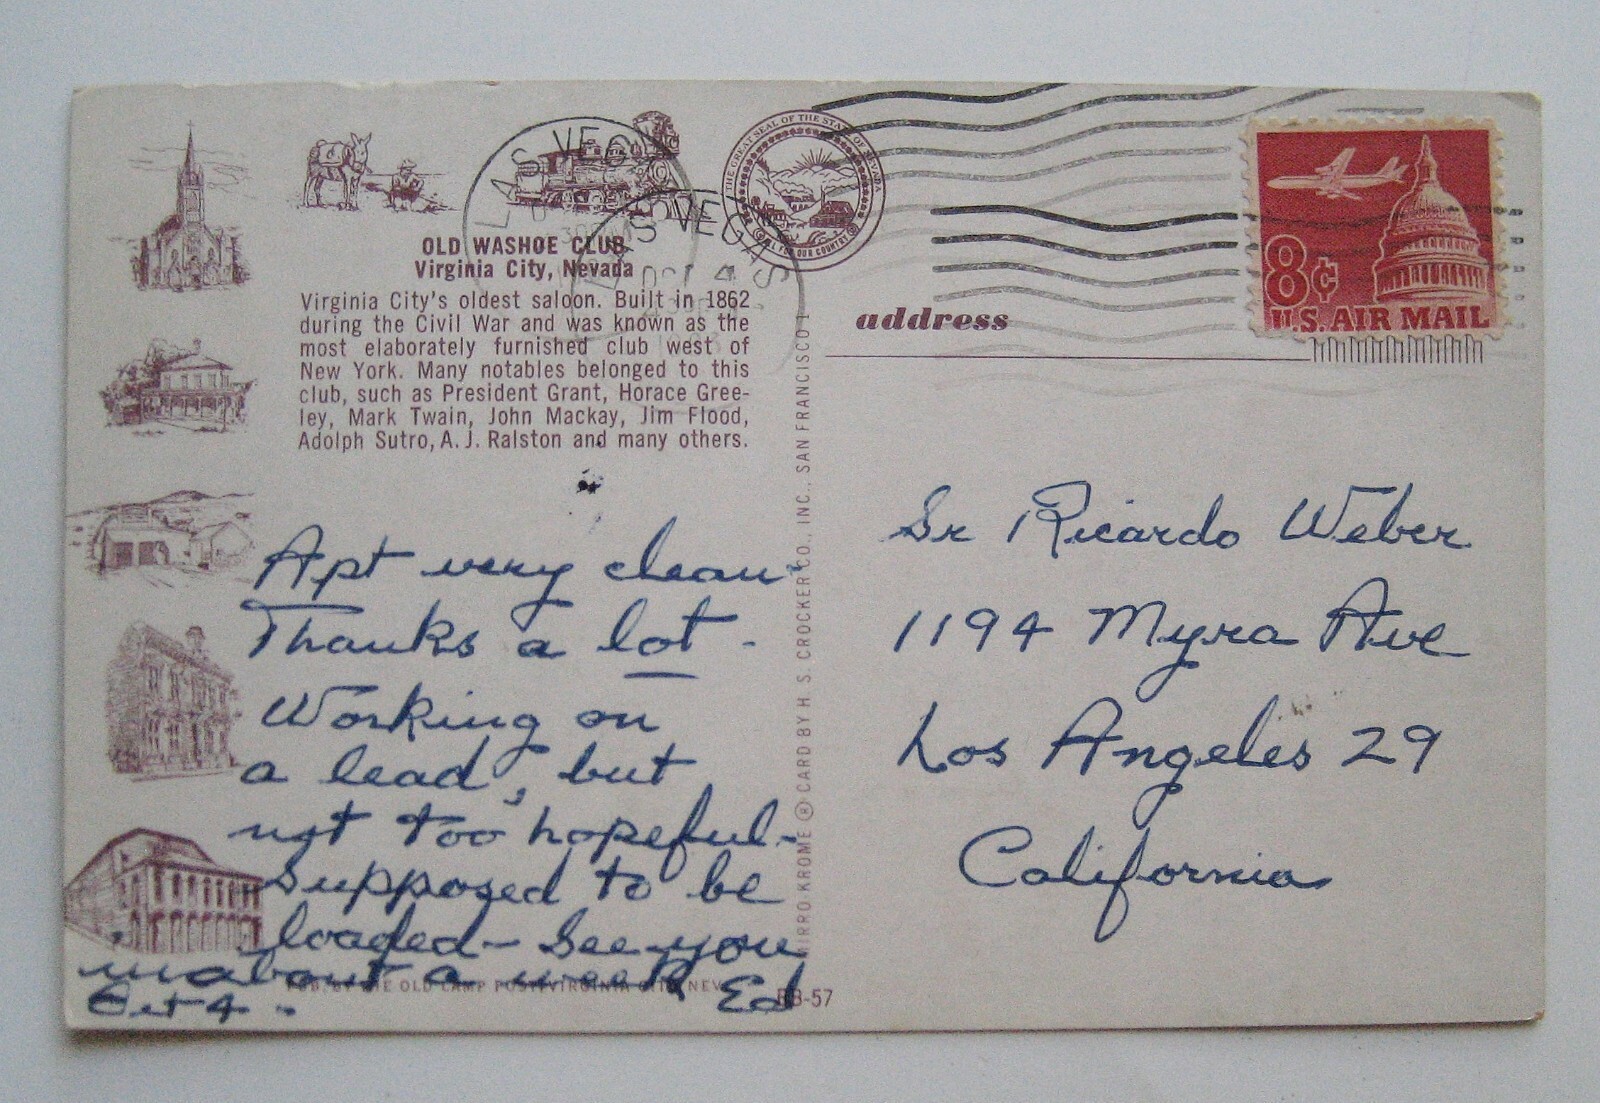 OLD WASHOE CLUB
Virginia City, Nevada
Virginia City's oldest saloon. Built in 1862
during the Civil War and was known as the
most elaborately furnished club west of
New York. Many notables belonged to this
club, such as President Grant, Horace Gree-
ley, Mark Twain, John Mackay, Jim Flood,
Adolph Sutro, A. J. Ralston and many others.
LAS VEGAS
LAS VEGAS
OCT 4
THE GREAT SEAL OF THE STATE OF NEVADA
ALL FOR OUR COUNTRY
8¢
U.S. AIR MAIL
address
Apt very clean-
Thanks a lot -
Working on
a lead, but
not too hopeful-
Supposed to be
loaded - See you
in about a week Ed
Oct 4 -
PUB. BY THE OLD CAMP POST, VIRGINIA CITY, NEV.
BB-57
MIRRO-KROME ® CARD BY H. S. CROCKER CO., INC., SAN FRANCISCO 1
Sr Ricardo Weber
1194 Myra Ave
Los Angeles 29
California